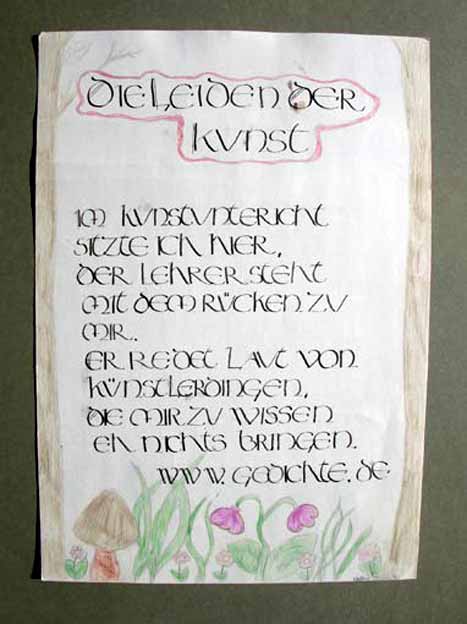 DIE LEIDEN DER
KUNST
IM KUNSTUNTERICHT
SITZTE ICH HIER,
DER LEHRER STEHT
MIT DEM RÜCKEN ZU
MIR.
ER REDET LAUT VON
KÜNSTLERDINGEN,
DIE MIR ZU WISSEN
EH NICHTS BRINGEN.
WWW.GEDICHTE.DE